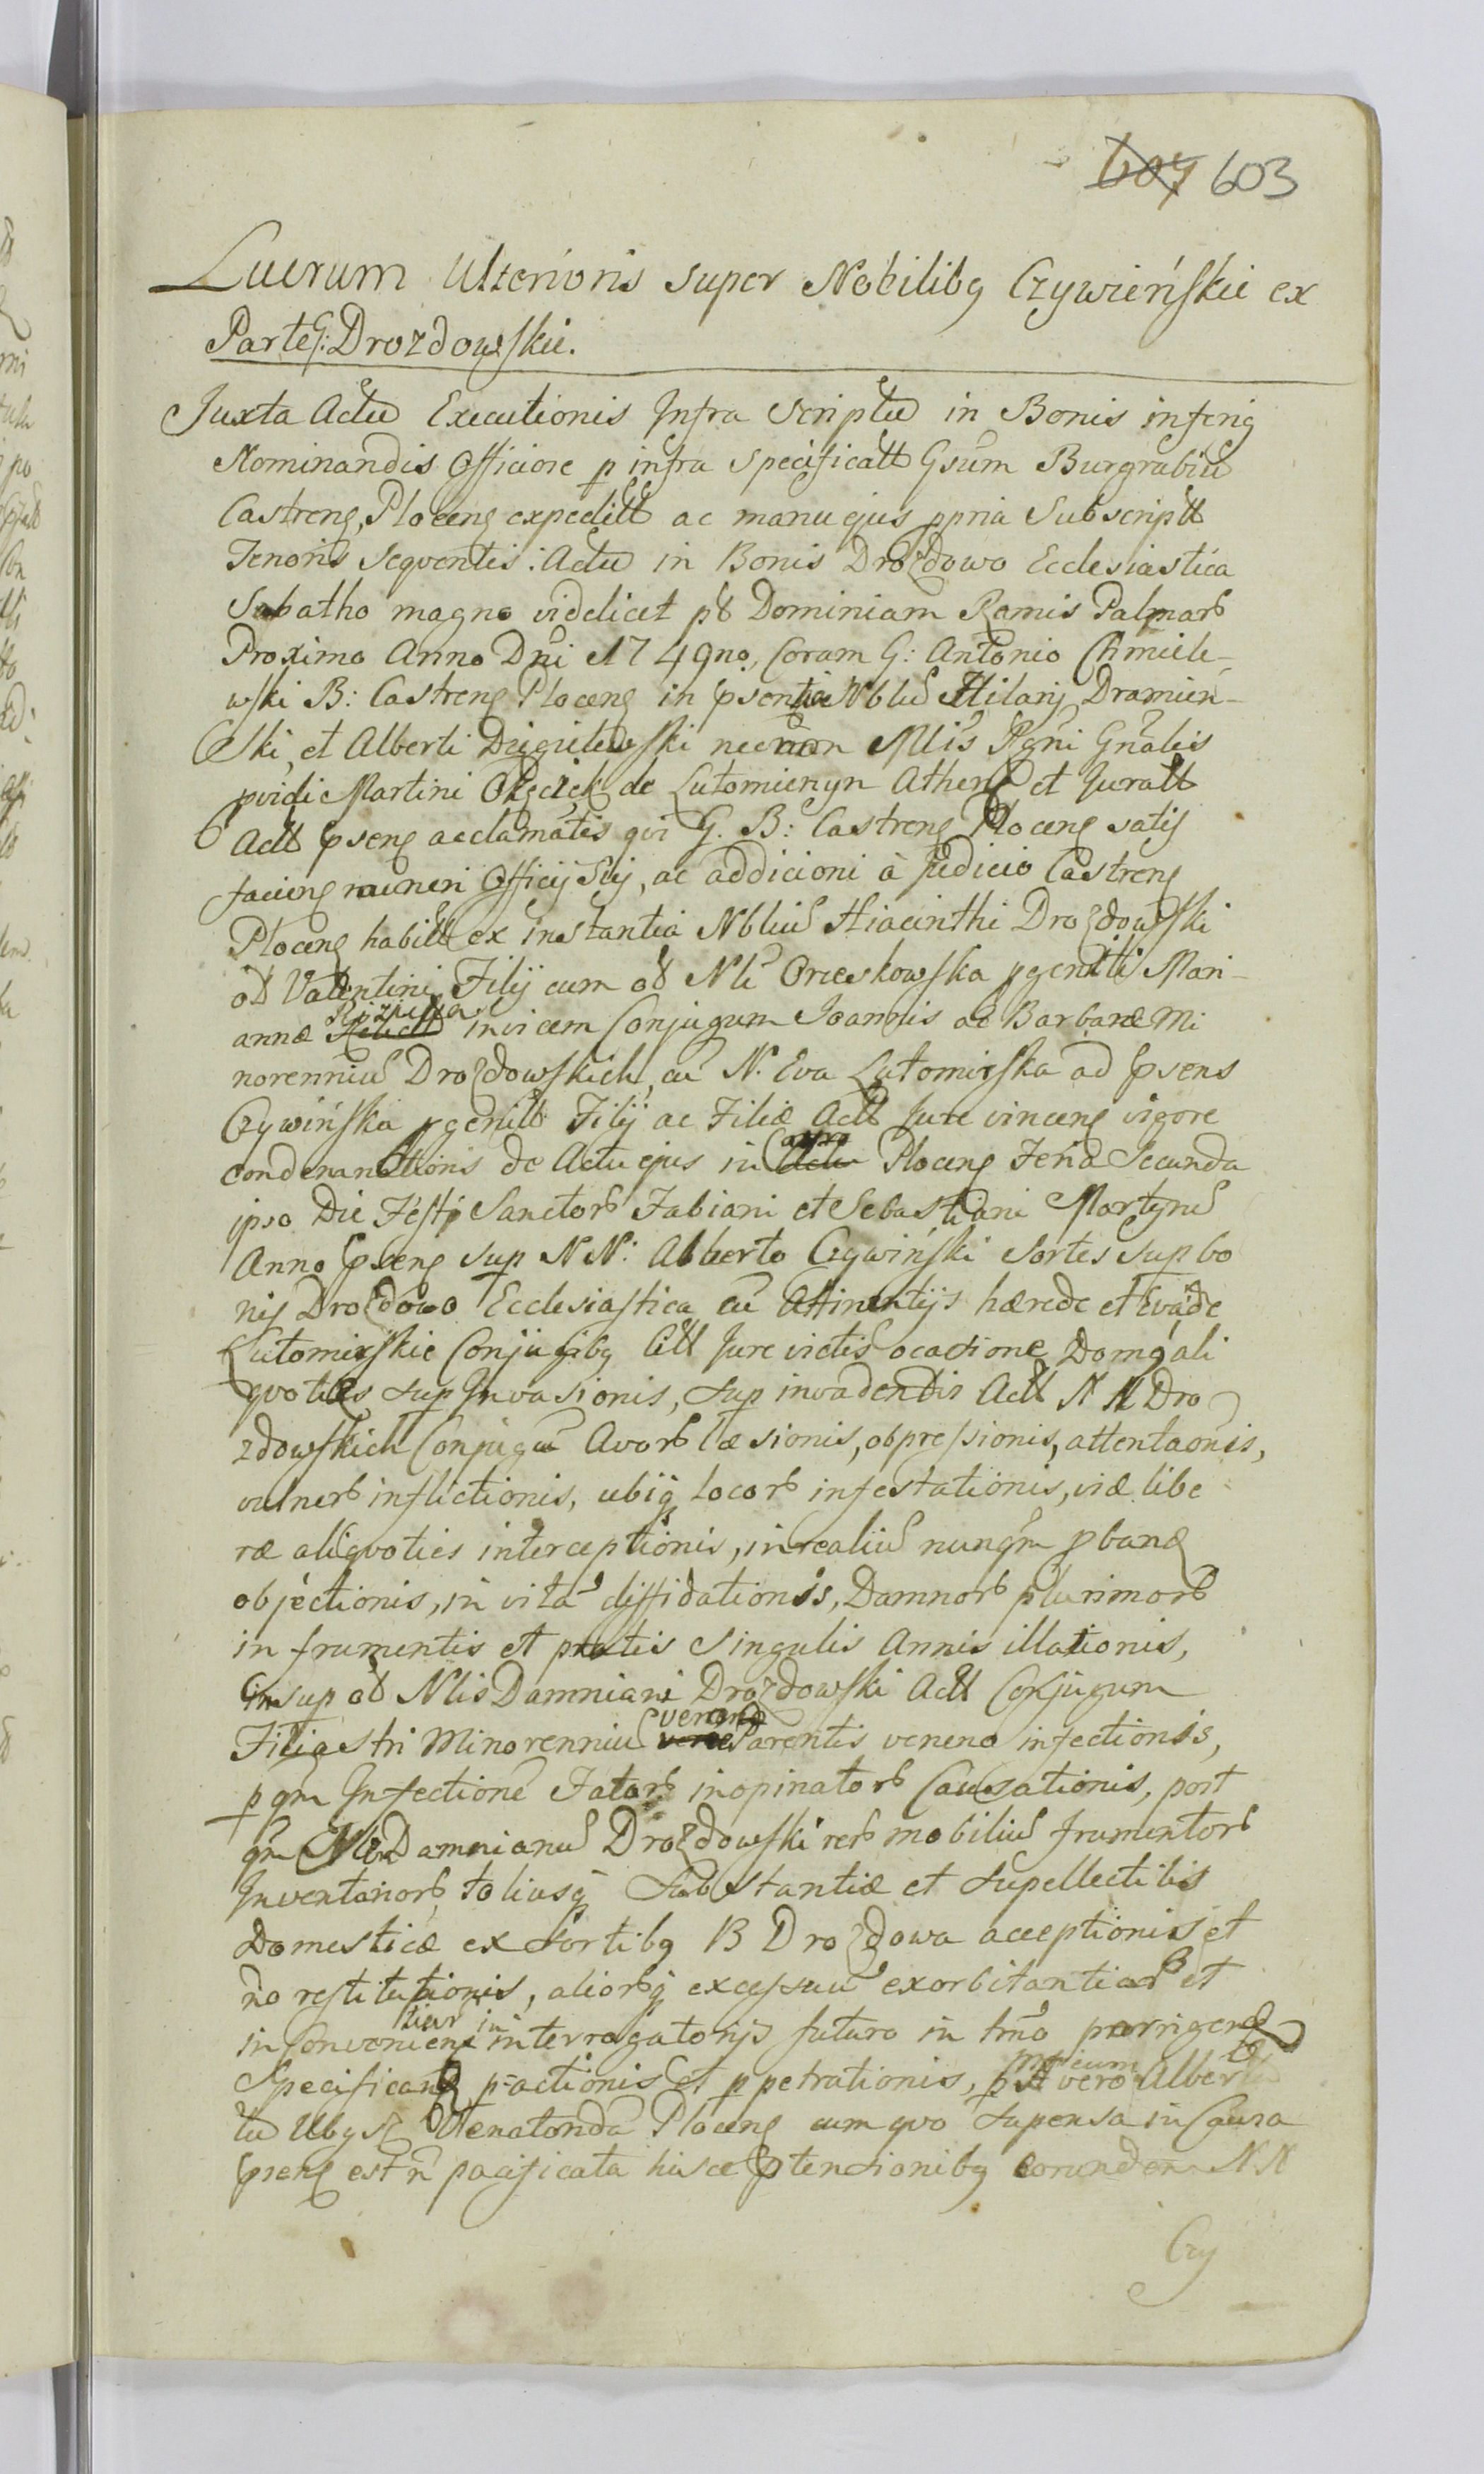 603
Lucrum Ulterioris super Nobilibq Czywieńskie ex
Parte G: Drozdowskie.
Juxta Actu Executionis Infra Scriptu in Bonis inferiq
Nominandis Officiore p infra Specificatt Gsum Burgrabiu
Castrenq, Plocenq expeditt ac manu ejus ppria Subscriptt
Tenoris Seqventis: Actu in Bonis Drozdowo Ecclesiastica
Sabatho magno videlicet pt Dominiam Ramis Palmarb
Proximo Anno Dni 1749no, Coram G: Antonio Chmiele-
wski B: Castrenq Plocenq in psentia Nbliu Hilarij Dramień-
ski, et Alberti Dzigielewski necnon Mlis Rgni Gnalis
pvidi Martini de Lutomierzyn Athenq et Juratt
Actt psenq acclamatis qvi G. B: Castrenq Plocenq satis
facienq muneri Officij Sui, ac addicioni à judicio Castrenq
Plocenq habitt ex instantia Nbliu Hiacinthi Drozdowski
ot Valentini Filij cum ot Nli Orceskowska pgeniti Mari-
annæ invicem Conjugum Joannis ac Barbaræ Mi
norenniu Drozdowskich, cu N. Eva Lutomirska ad psens
Czywińska pgenitt Filij ac Filiæ Actt Jure vincenq vigore
condemnattionis de Actu ejus in Castro Plocenq Feria Secunda
ipso Die Festi Sanctorb Fabiani et Sebastiani Martyru
Anno psenq sup NN: Alberto Czywiński Sortes sup bo
nis Drozdowo Ecclesiastica cu Attinentijs hærede et Eva de
Lutomirskie Conjugibq Citt Jure victis ocasione Dom9 ali
qvoties sup Invasionis, sup invadentis Actt NN Dro
zdowskich Conjugu Avorb læsionis, obpressionis, attentaonis,
vulnerb inflictionis, ubiq locorb infestationis, viæ libe
ræ aliqvoties interceptionis, in realiu nunqm pbanq
objectionis, in vita diffidationis, Damnorb plurimorb
in frumentis et pratis Singulis Annis illationis,
insup ot Nlis Damniani Drozdowski Actt Conjugum
Filiastri Minorenniu veronq Parentis veneno infectionis,
p qm Infectione Fatorb inopinatorb Causationis, post
qm Nlem Damnianu Drozdowski rerb mobiliu frumentorb
Inventariorb, toliusq Substantiæ et Supellectilis
Domesticæ ex Sortibq B Drozdowa acceptionis et
no restitutionis, aliorbq excessuu exorbitantiarb et
inconvenientiar in interrogatorijs futuro in tmo porrigenq
Specificanq p-actionis et ppetrationis, vero Alber
Plocenq cum qvo Supensa in Causa
psenq est n pacificata hisce ptensionibq eorundem NN
Czy